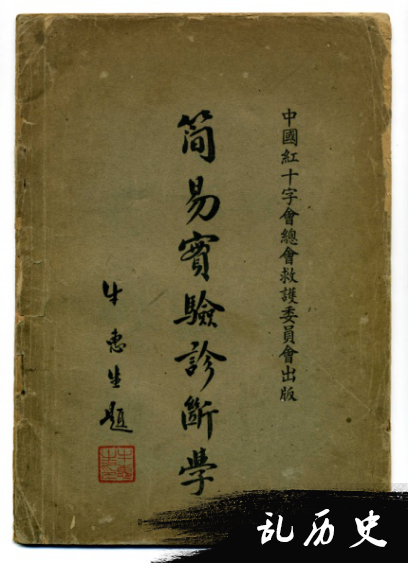 中國紅十字會總會救護委員會出版
簡易實驗診斷學
牛惠生題
乱历史